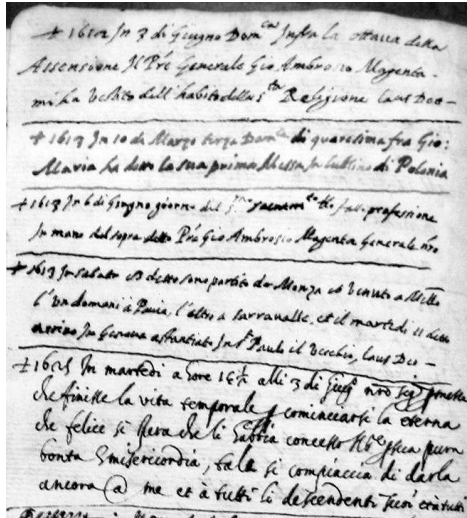 + 1612 In 3 di Giugno Dom.ca Infra la ottava della
Assensione Il P.re Generale Gio Ambrosio Magenta
mi ha vestito dell'habito della s.ta Religione laus Deo -
+ 1613 In 10 de Marzo terza Dom.ca di quaresima fra Gio:
Maria ha detto la sua prima Messa In Lublino di Polonia
+ 1613 In 6 di Giugno giorno del S.mo sacram.to ho fatto professione
In mano del sopra detto P.re Gio Ambrosio Magenta Generale n.ro
+ 1613 In sabato detto sono partito da Monza venuto a Mil.o
l'un domani à Pavia, l'altro a sarravalle, et il martedi 11 detto
arrivo In Genova a stantiato In S. Paulo il Vecchio, laus Deo -
+ 1625 In martedi a hore alli 3 di n.ro
che finisse la vita temporale cominciarsi la eterna
che felice si spera che li habbia concesso pura
bontà E misericordia, tale si compiaccia di darla
ancora @ me et à tutti li descendenti tutti